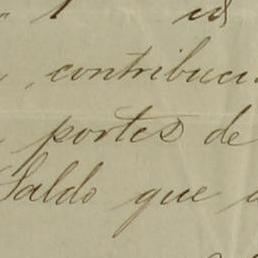 contribuci
portes de
Saldo que